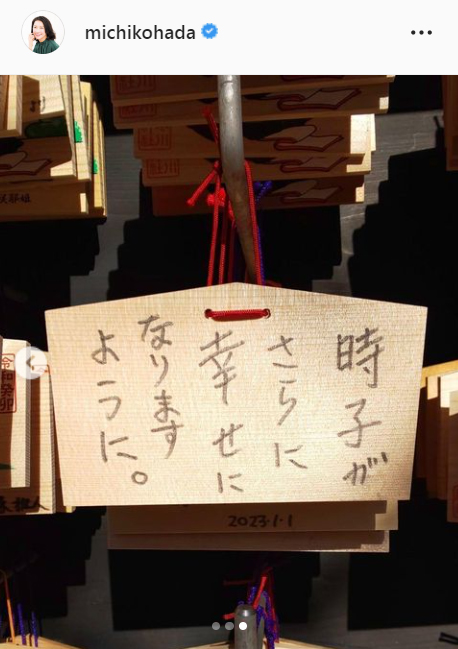 michikohada
時子が
さらに
幸せに
なります
ように。
2023.1.1
令和癸卯